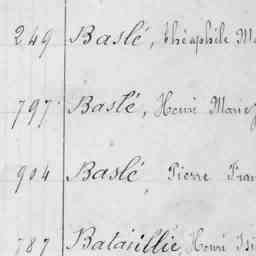 249 Baslé, théophile M
797 Baslé, Henri Marie
904 Baslé, Pierre Fran
787 Bataillie, Henri Isi